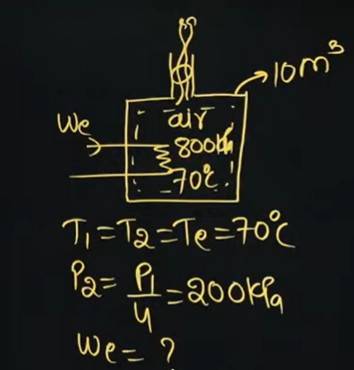 10m³
air
We
800kPa
70°C
T₁=T₂=Te=70°C
P₂=P₁/4=200kPa
We=?